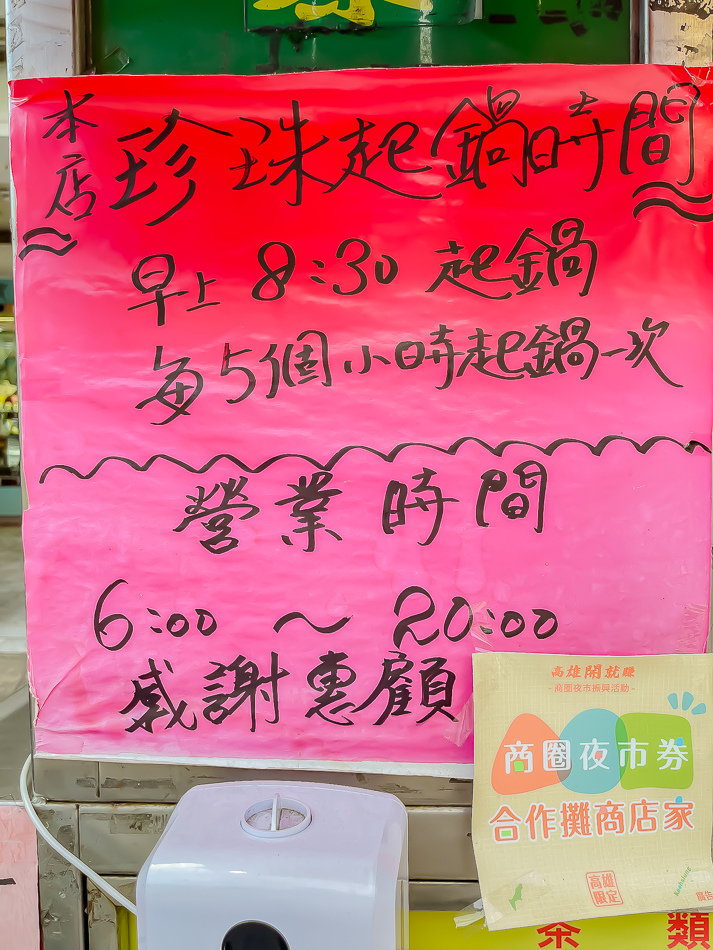 本店
珍珠起鍋時間
早上 8:30 起鍋
每5個小時起鍋一次
營業時間
6:00 ～ 20:00
感謝惠顧
高雄開就賺
-商圈夜市振興活動-
商圈夜市券
合作攤商店家
高雄
限定
廣告
茶 類